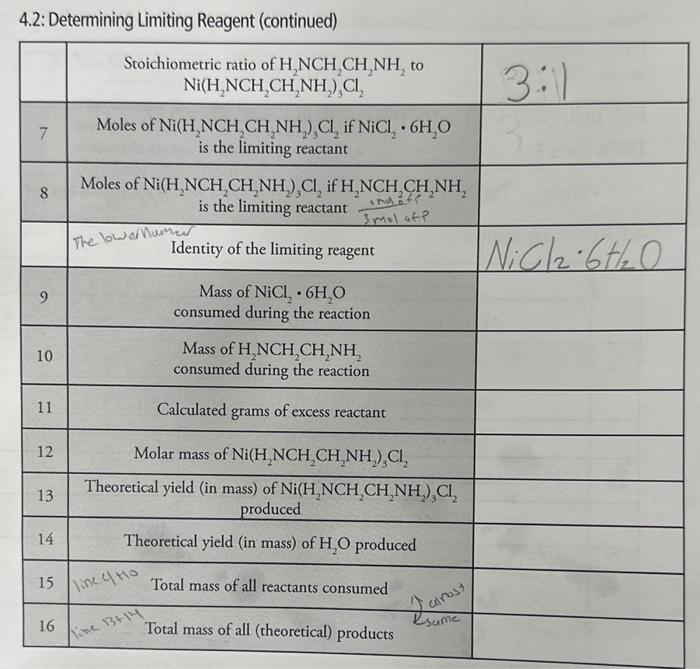 4.2: Determining Limiting Reagent (continued)
Stoichiometric ratio of H₂NCH₂CH₂NH₂ to
Ni(H₂NCH₂CH₂NH₂)₃Cl₂
3:1
7
Moles of Ni(H₂NCH₂CH₂NH₂)₃Cl₂ if NiCl₂ • 6H₂O
is the limiting reactant
8
Moles of Ni(H₂NCH₂CH₂NH₂)₃Cl₂ if H₂NCH₂CH₂NH₂
is the limiting reactant
3 mol of P
The lower Number
Identity of the limiting reagent
NiCl2·6H2O
9
Mass of NiCl₂ • 6H₂O
consumed during the reaction
10
Mass of H₂NCH₂CH₂NH₂
consumed during the reaction
11
Calculated grams of excess reactant
12
Molar mass of Ni(H₂NCH₂CH₂NH₂)₃Cl₂
13
Theoretical yield (in mass) of Ni(H₂NCH₂CH₂NH₂)₃Cl₂
produced
14
Theoretical yield (in mass) of H₂O produced
15
line 9+10
Total mass of all reactants consumed
almost
same
16
line 13+14
Total mass of all (theoretical) products